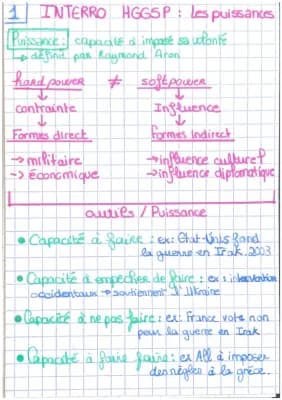 1 INTERRO HGGSP : les puissances
Puissance : capacité à imposé sa volonté
→ défini par Raymond Aron
hard power ≠ soft power
↓ ↓
contrainte Influence
↓ ↓
Formes direct Formes indirect
→ militaire → influence culturel
→ économique → influence diplomatique
autres / Puissance
• Capacité à faire : ex : Etat-Unis fond
la guerre en Irak 2003
• Capacité à empecher de faire : ex : intervention
occidentaux → soutiennent l'Ukraine
• Capacité à ne pas faire : ex : France vote non
pour la guerre en Irak
• Capacité à faire faire : ex All à imposer
des règles à la grèce.